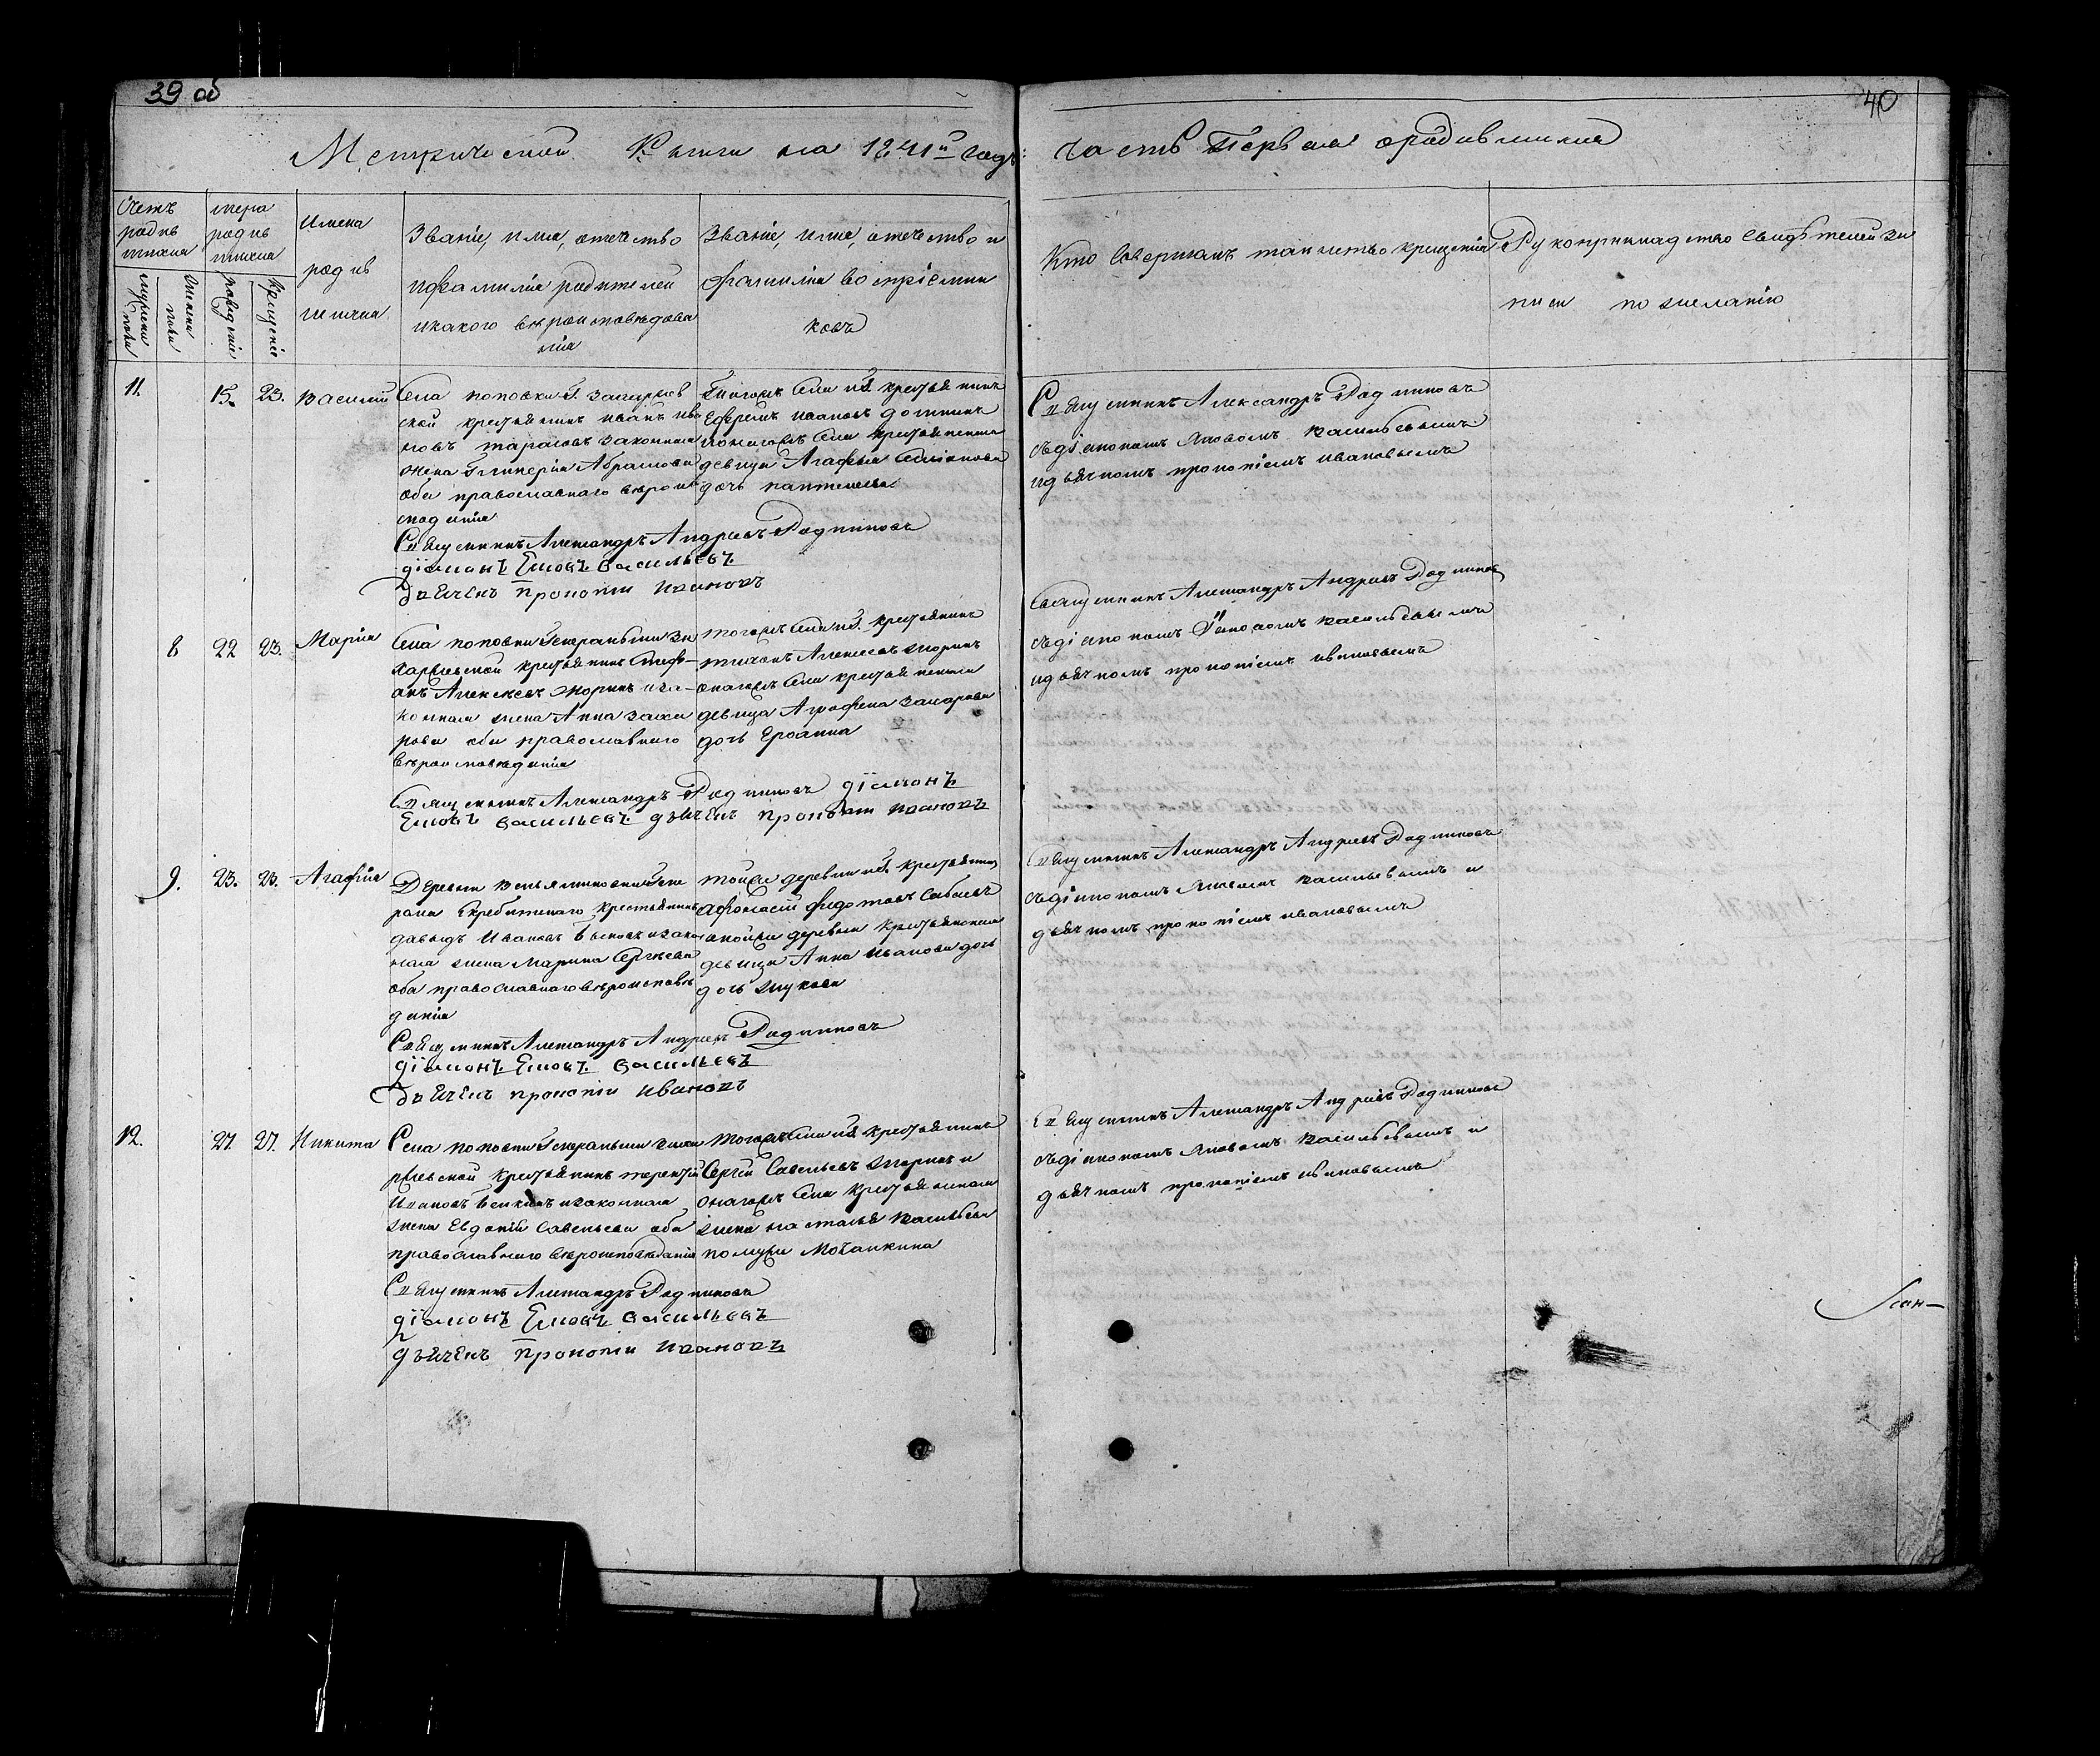 39 об
40
Метрической Книги на 1841й годъ: часть Первая ородившихся
Счетъ родив шихся
мужеска пола
женска пола
мера родив шихся
рождение
крещение
Имена
родив
шихся
Званіе, имя, отечество
ифамилія родителей
икакого вероисповедова
нія
Званіе, имя, отечество и
фамилія воспріемни
ковъ
Кто Совершалъ таинство крещенія
Рукоприкладство свидетелей за
писи по желанію
11. 15. 23. Василий
Села поповки Г. Захаржев
ской крестьянинъ иванъ ива
новъ тарасовъ законная
жена Гликерия Абрамова
оба православнаго вероис
поведания
Священникъ Александръ Андреевъ Родниковъ
діаконъ Яковъ Васильевъ
Дьячекъ Прокопій Ивановъ
Тогожъ Села иГ. крестьянинъ
Ефремъ Ивановъ
ионагожъ Села крестьянская
девица Агафья Семіонова
дочь пантелеева
Священникъ Александръ Родниковъ
съдіакономъ Яковомъ Васильевымъ
идьячкомъ прокопіемъ ивановымъ
8 22 23. Марія
Села поповки Генеральши За
харжевской крестьянинъ Стеф-
анъ Алексеевъ Жоринъ иза-
конная жена Анна Заха
рова оба православнаго
вероисповедания
Священникъ Александръ Родниковъ діаконъ
Яковъ Васильевъ дьячекъ Прокопій Ивановъ
тогожъ Села иГ. крестьянинъ
тихонъ Алексеевъ Жоринъ
онагожъ Села крестьянская
девица Аграфена Захарова
дочь Ероанна
Священникъ Александръ Андреевъ Родниковъ
съдіакономъ Яковомъ Васильевымъ
идьячкомъ прокопіемъ ивановымъ
9. 23. 23. Агафия
Деревни Веньяминовки Гене
рала Скребитскаго Крестьянинъ
давыдъ Ивановъ изакон
ная жена Марина Сергеева
оба православнаго вероисповѣ
дания
Священникъ Александръ Андреевъ Родниковъ
діаконъ Яковъ Васильевъ
Дьячекъ прокопій Ивановъ
тойже деревни иГ. крестьянинъ
Афонасій федотовъ Сабаевъ
анойже деревни крестьянская
девица Анна Иванова дочь
дочь Жукова
Священникъ Александръ Андреевъ Родниковъ
съдіакономъ Яковомъ Васильевымъ и
дьячкомъ прокопіемъ ивановымъ
12. 27. 27. Никита
Села поповки Генеральши Заха
ржевской крестьянинъ терентий
Ивановъ изаконная
жена Евдокия Савельева оба
православнаго вероисповедания
Священникъ Александръ Родниковъ
діаконъ Яковъ Васильевъ
дьячекъ Прокопій Ивановъ
тогожъ Села иГ. крестьянинъ
Сергей Савельевъ Жоринъ и
онагожъ Села крестьянская
жена наталья Васильева
помужу Мочалкина
Священникъ Александръ Андреевъ Родниковъ
съдіакономъ Яковомъ Васильевымъ и
дьячкомъ прокопіемъ ивановымъ